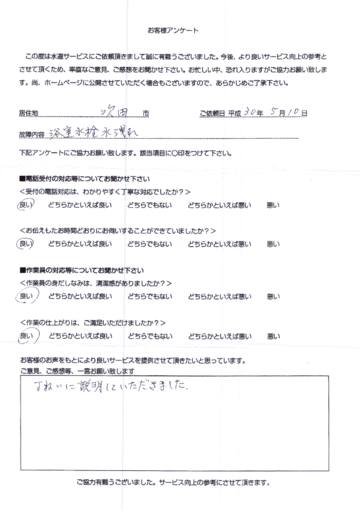 お客様アンケート
この度は水道サービスにご依頼頂きまして誠に有難うございました。今後、より良いサービス向上の参考と
させて頂くため、率直なご意見、ご感想をお聞かせ下さい。お忙しい中、恐れ入りますがご協力お願い致しま
す。尚、ホームページに公開させていただく場合もございますので、あらかじめご了承下さい。
居住地 吹田 市 ご依頼日 平成 30年 5月 10日
故障内容 洗濯水栓水漏れ
下記アンケートにご協力お願い致します。該当項目に○印をつけて下さい。
■電話受付の対応等についてお聞かせ下さい
<受付の電話対応は、わかりやすく丁寧な対応でしたか?>
良い どちらかといえば良い どちらでもない どちらかといえば悪い 悪い
<お伝えしたお時間どおりにお伺いすることができていましたか?>
良い どちらかといえば良い どちらでもない どちらかといえば悪い 悪い
■作業員の対応等についてお聞かせ下さい
<作業員の身だしなみは、清潔感がありましたか?>
良い どちらかといえば良い どちらでもない どちらかといえば悪い 悪い
<作業の仕上がりは、ご満足いただけましたか?>
良い どちらかといえば良い どちらでもない どちらかといえば悪い 悪い
お客様のお声をもとにより良いサービスを提供させて頂きたいと思っています。
ご意見、ご感想等、一言お願い致します
ていねいに説明していただきました。
ご協力有難うございました。サービス向上の参考にさせて頂きます。